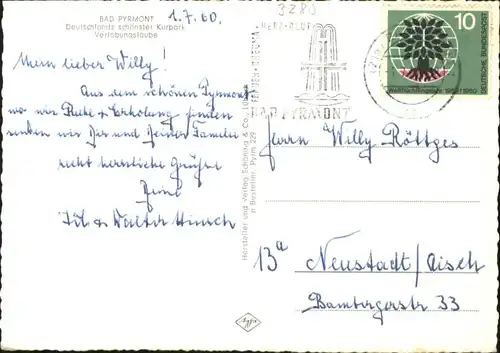 BAD PYRMONT
Deutschlands schönster Kurpark
Verlobungslaube
1.7.60.
Mein lieber Willy!
Aus dem schönen Pyrmont
wo wir Ruhe & Erholung finden
senden wir Dir und Deiner Familie
recht herzliche Grüße
Deine
& Walter
Hersteller und Verlag Schöning & Co., Lübeck
Bestellnr. Pyrm 229
3280
HERZ-BLUT
BAD PYRMONT
10
DEUTSCHE BUNDESPOST
Weltflüchtlingsjahr 1959/1960
Herrn Willy Röttges
13a
Neustadt/Aisch
Bambergerstr. 33
Agfa